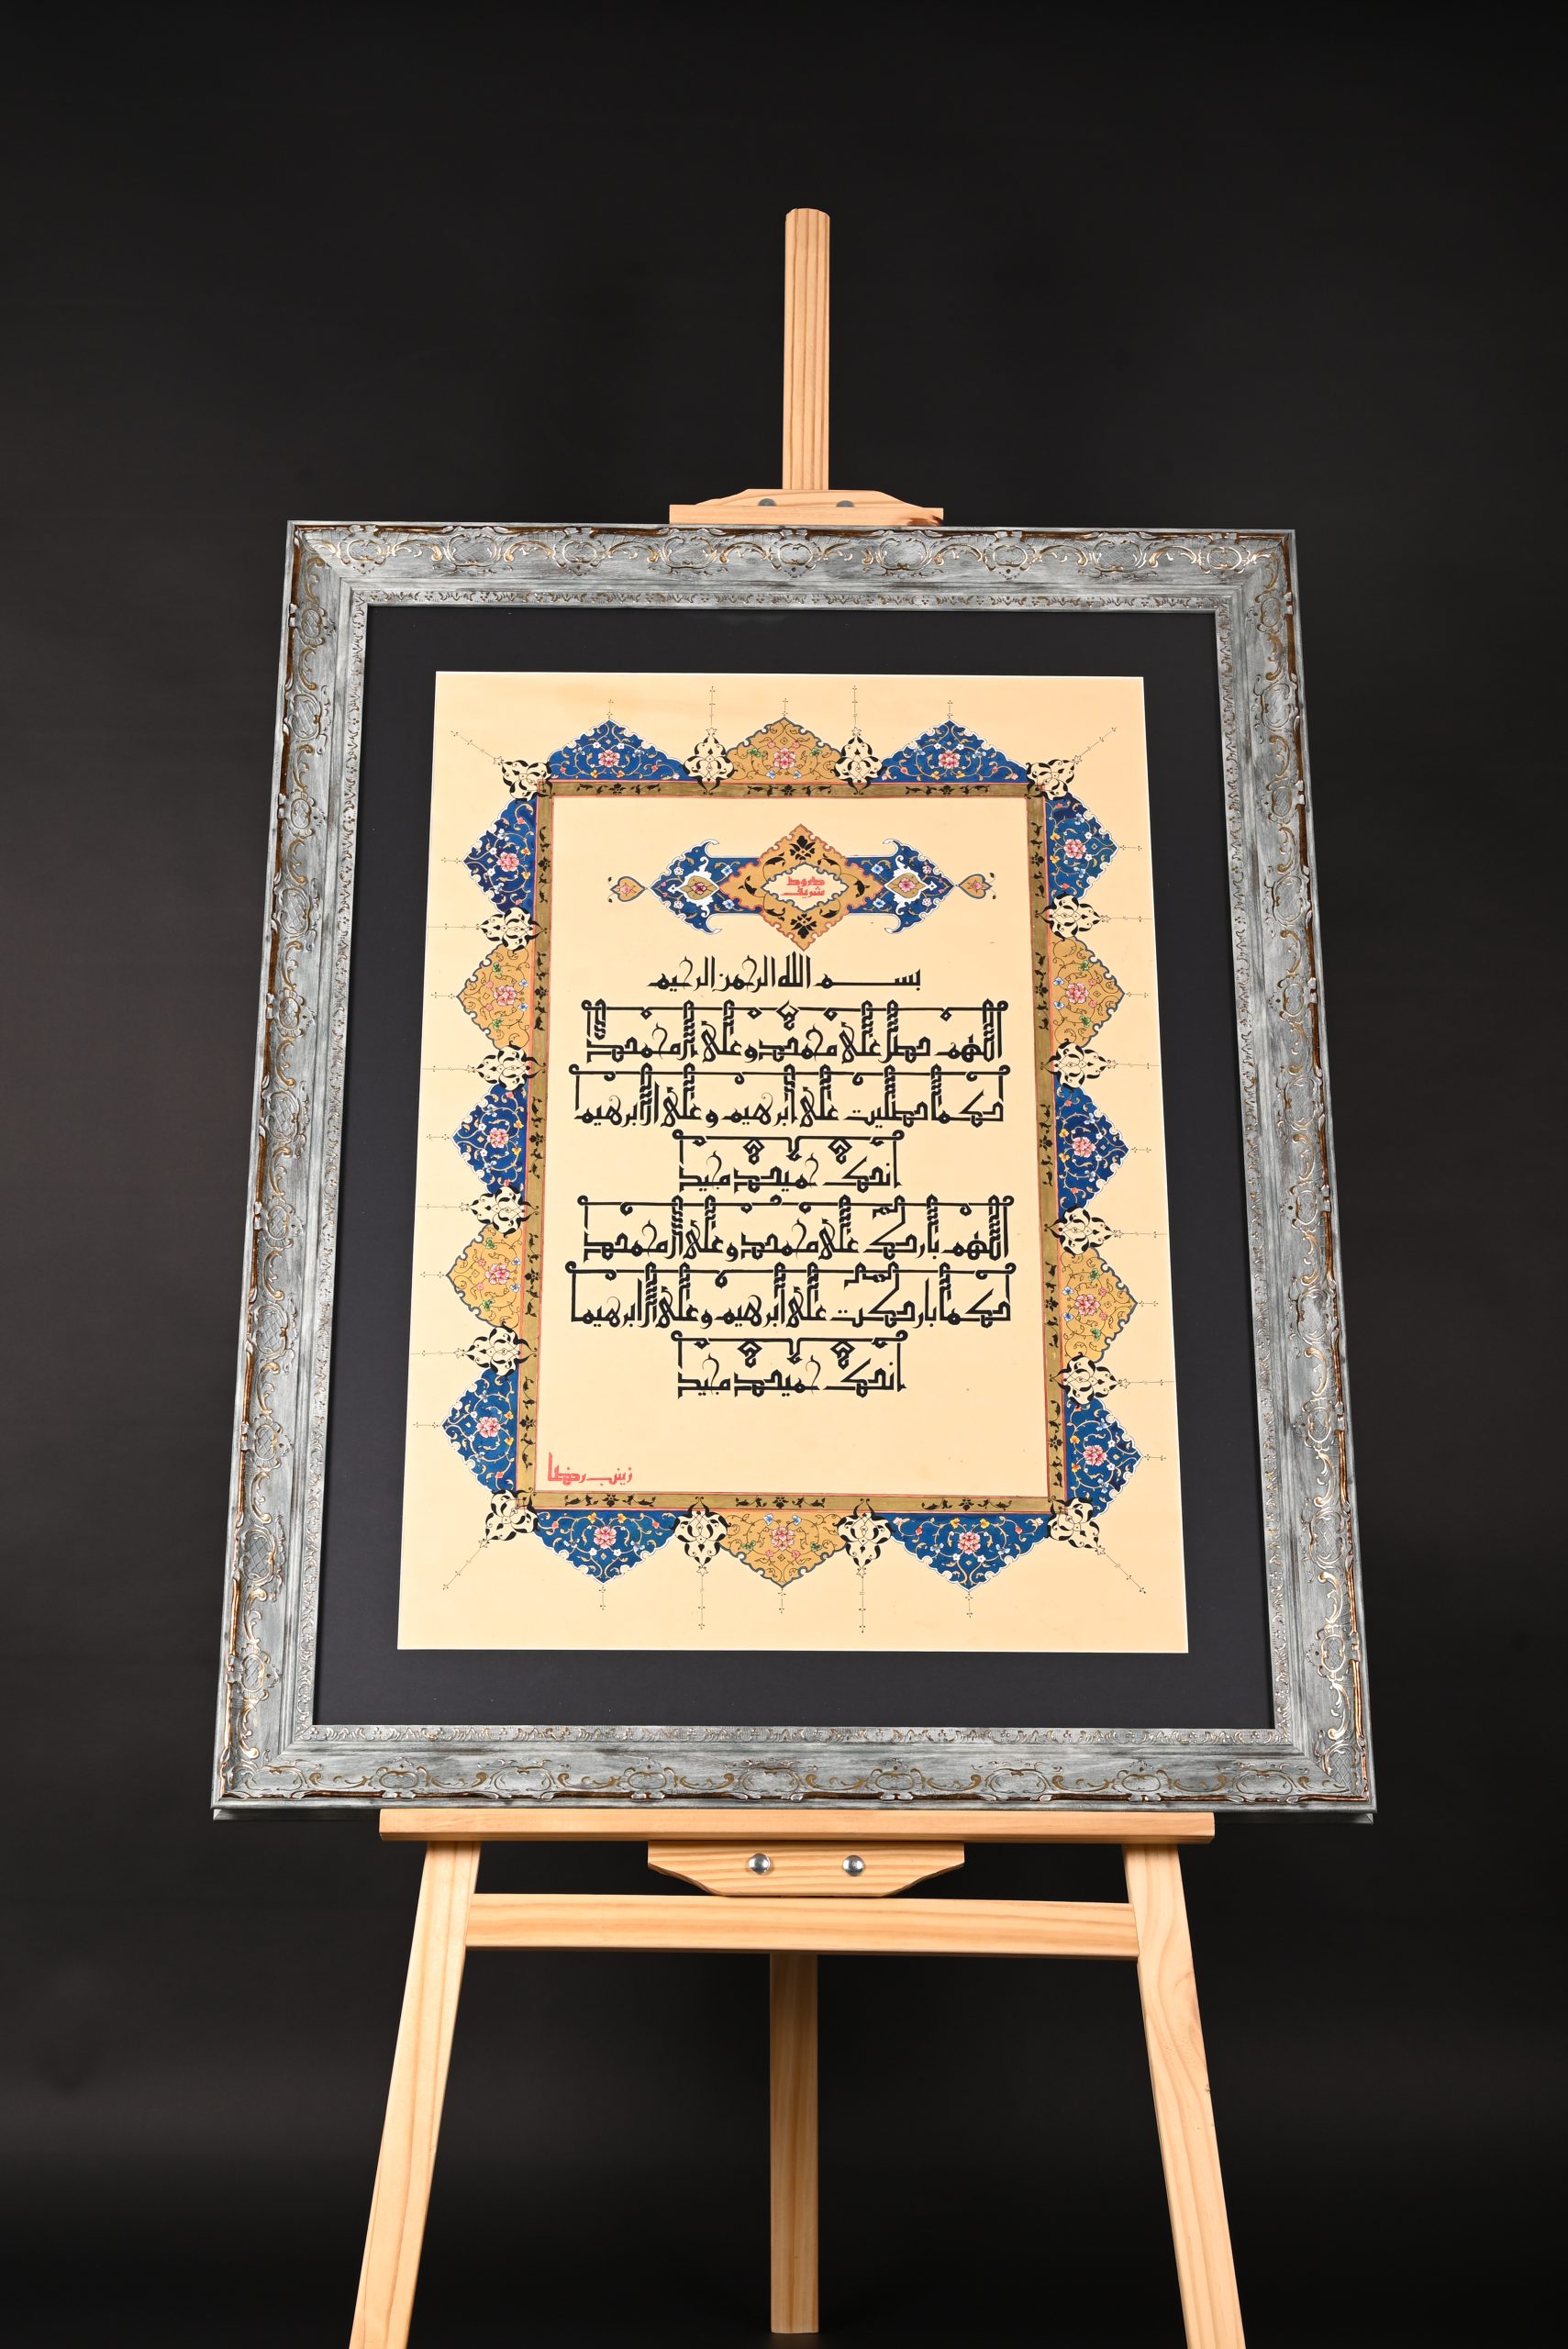 درود
شريف
بسم الله الرحمن الرحيم
اللهم صل على محمد وعلى آل محمد
كما صليت على ابرهيم وعلى آل ابرهيم
انك حميد مجيد
اللهم بارك على محمد وعلى آل محمد
كما باركت على ابرهيم وعلى آل ابرهيم
انك حميد مجيد
زينب رضا